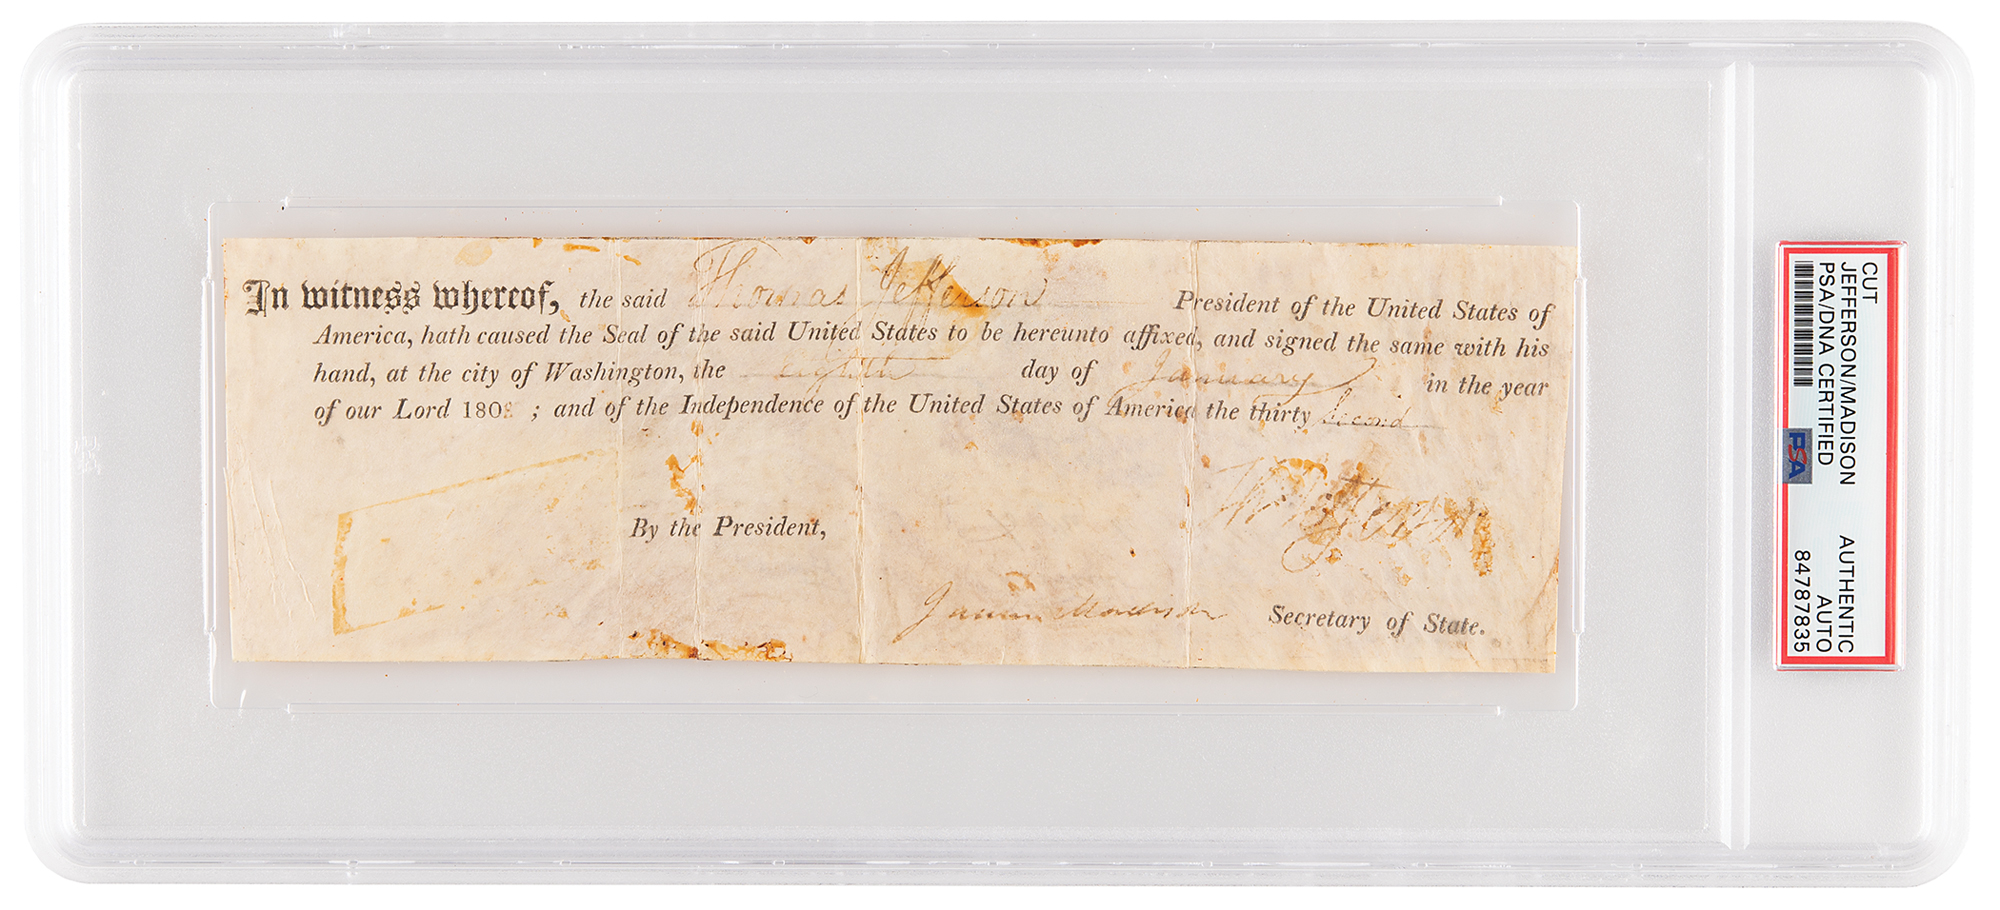 In witness whereof, the said Thomas Jefferson President of the United States of
America, hath caused the Seal of the said United States to be hereunto affixed, and signed the same with his
hand, at the city of Washington, the eighth day of January in the year
of our Lord 1808 ; and of the Independence of the United States of America the thirty second
Th Jefferson
By the President,
James Madison Secretary of State.
CUT
JEFFERSON/MADISON AUTHENTIC
PSA/DNA CERTIFIED AUTO
84787835
PSA